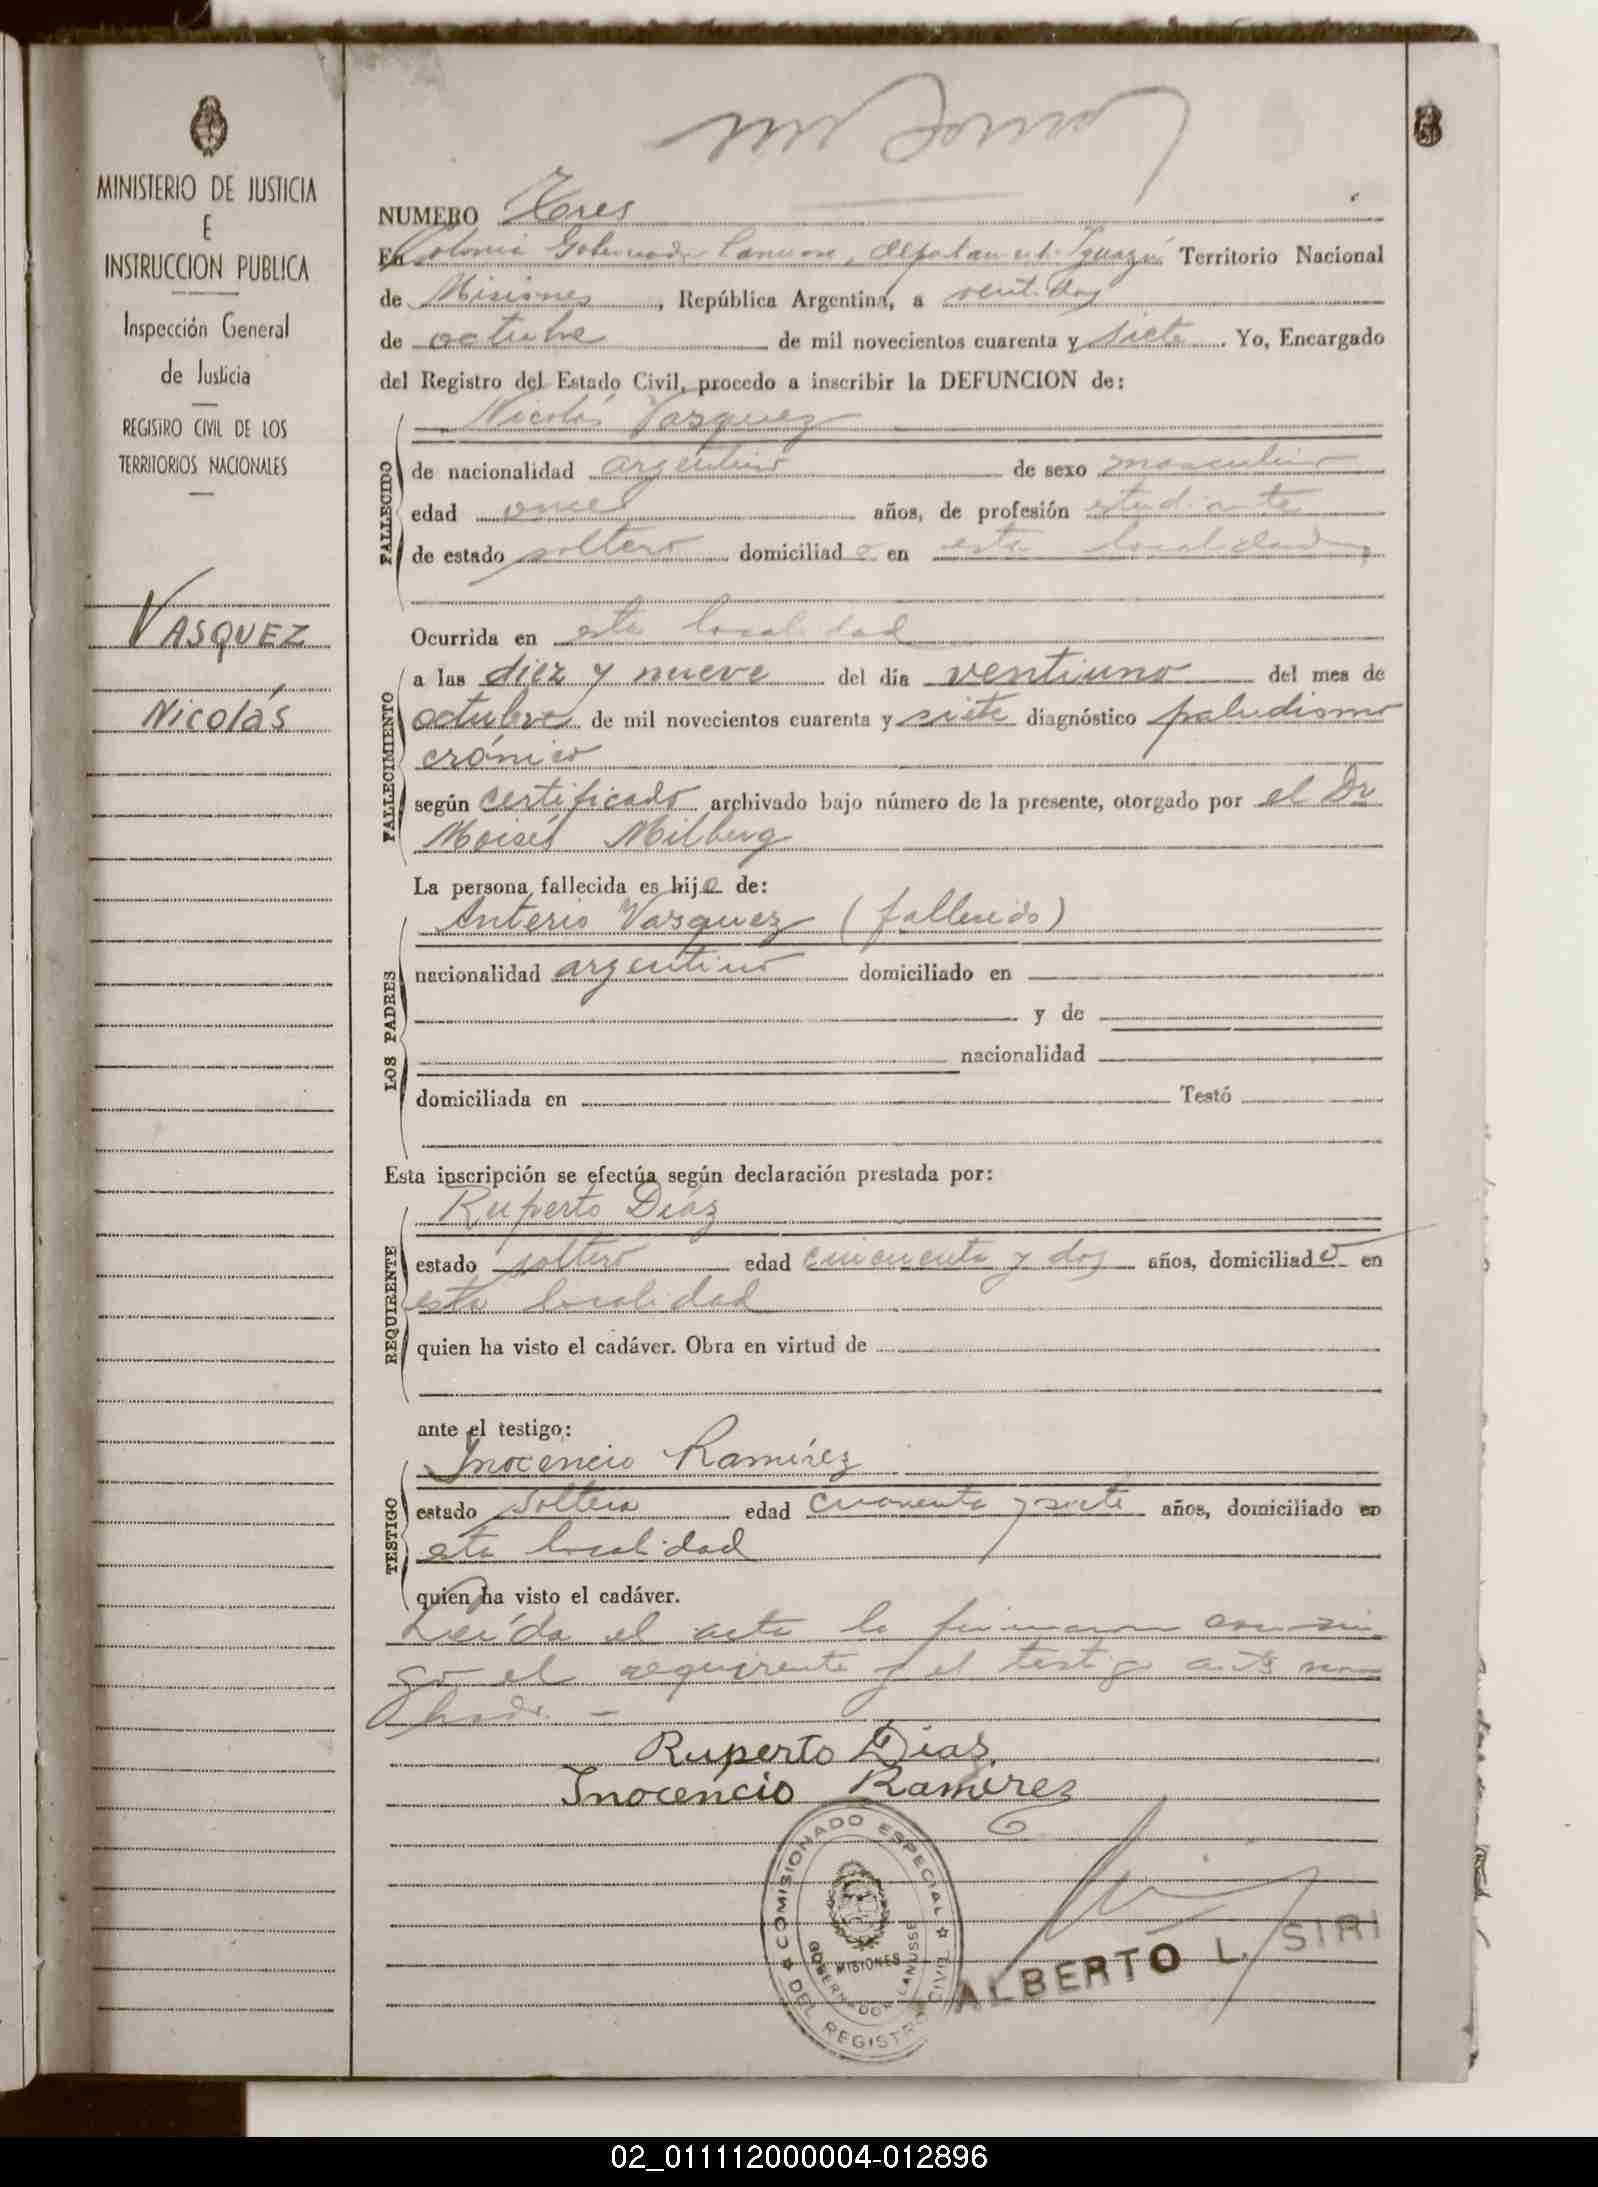 MINISTERIO DE JUSTICIA
E
INSTRUCCION PUBLICA
Inspección General
de Justicia
REGISTRO CIVIL DE LOS
TERRITORIOS NACIONALES
VASQUEZ
Nicolás
NUMERO Tres
En Colonia Gobernador Lanusse, departamento Iguazú Territorio Nacional
de Misiones, República Argentina, a ventidos
de octubre de mil novecientos cuarenta y siete. Yo, Encargado
del Registro del Estado Civil, procedo a inscribir la DEFUNCION de:
Nicolás Vasquez
FALLECIDO
de nacionalidad argentino de sexo masculino
edad once años, de profesión estudiante
de estado soltero domiciliado en esta localidad,
Ocurrida en esta localidad
FALLECIMIENTO
a las diez y nueve del día ventiuno del mes de
octubre de mil novecientos cuarenta y siete diagnóstico paludismo
crónico
según certificado archivado bajo número de la presente, otorgado por el Dr
Moisés Milberg
La persona fallecida es hijo de:
LOS PADRES
Anterio Vasquez (fallecido)
nacionalidad argentino domiciliado en
y de
nacionalidad
domiciliada en Testó
Esta inscripción se efectúa según declaración prestada por:
REQUIRENTE
Ruperto Díaz
estado soltero edad cincuenta y dos años, domiciliado en
esta localidad
quien ha visto el cadáver. Obra en virtud de
ante el testigo:
TESTIGO
Inocencio Ramírez
estado soltero edad cuarenta y siete años, domiciliado en
esta localidad
quien ha visto el cadáver.
Leída el acta la firmaron conmi
go el requirente y el testigo ante nom
brado. -
Ruperto Díaz
Inocencio Ramírez
COMISIONADO ESPECIAL DEL REGISTRO CIVIL
MISIONES
GOBERNADOR LANUSSE
ALBERTO L. SIRI
02_011112000004-012896